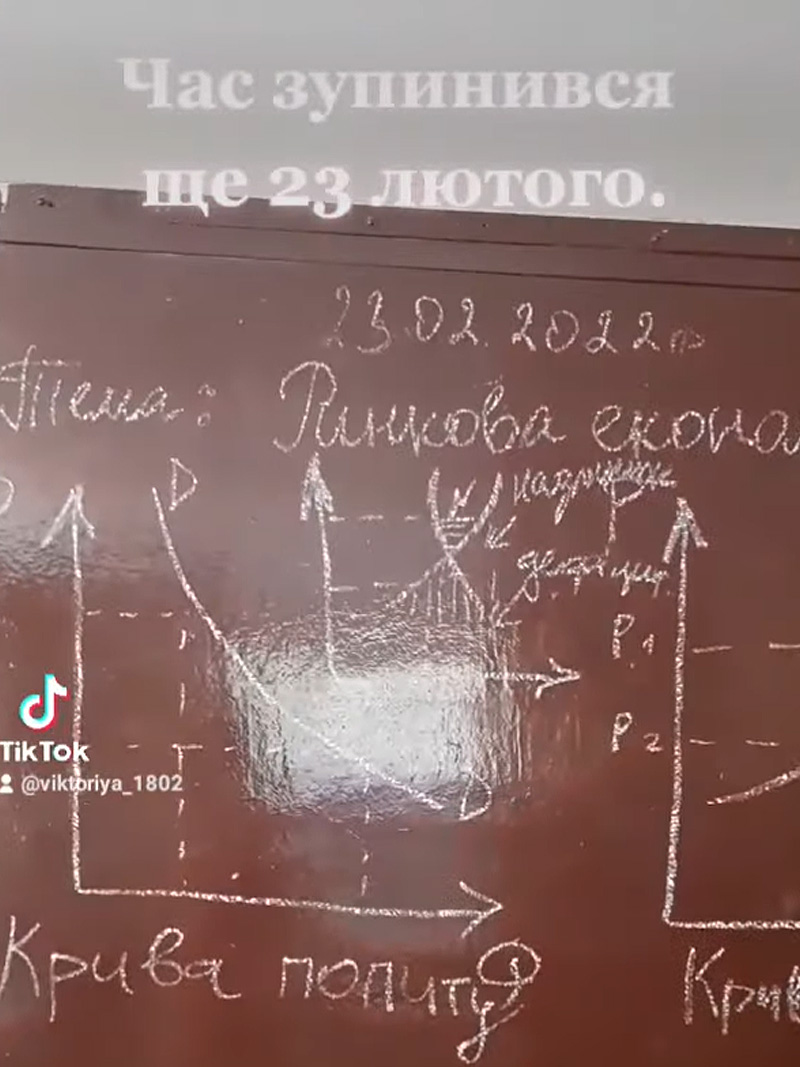 Час зупинився
ще 23 лютого.
23.02.2022р
Тема: Ринкова еконо
D
надлишок
дефіцит
P
P1
P2
TikTok
@viktoriya_1802
D
Крива попиту
Q
Крив